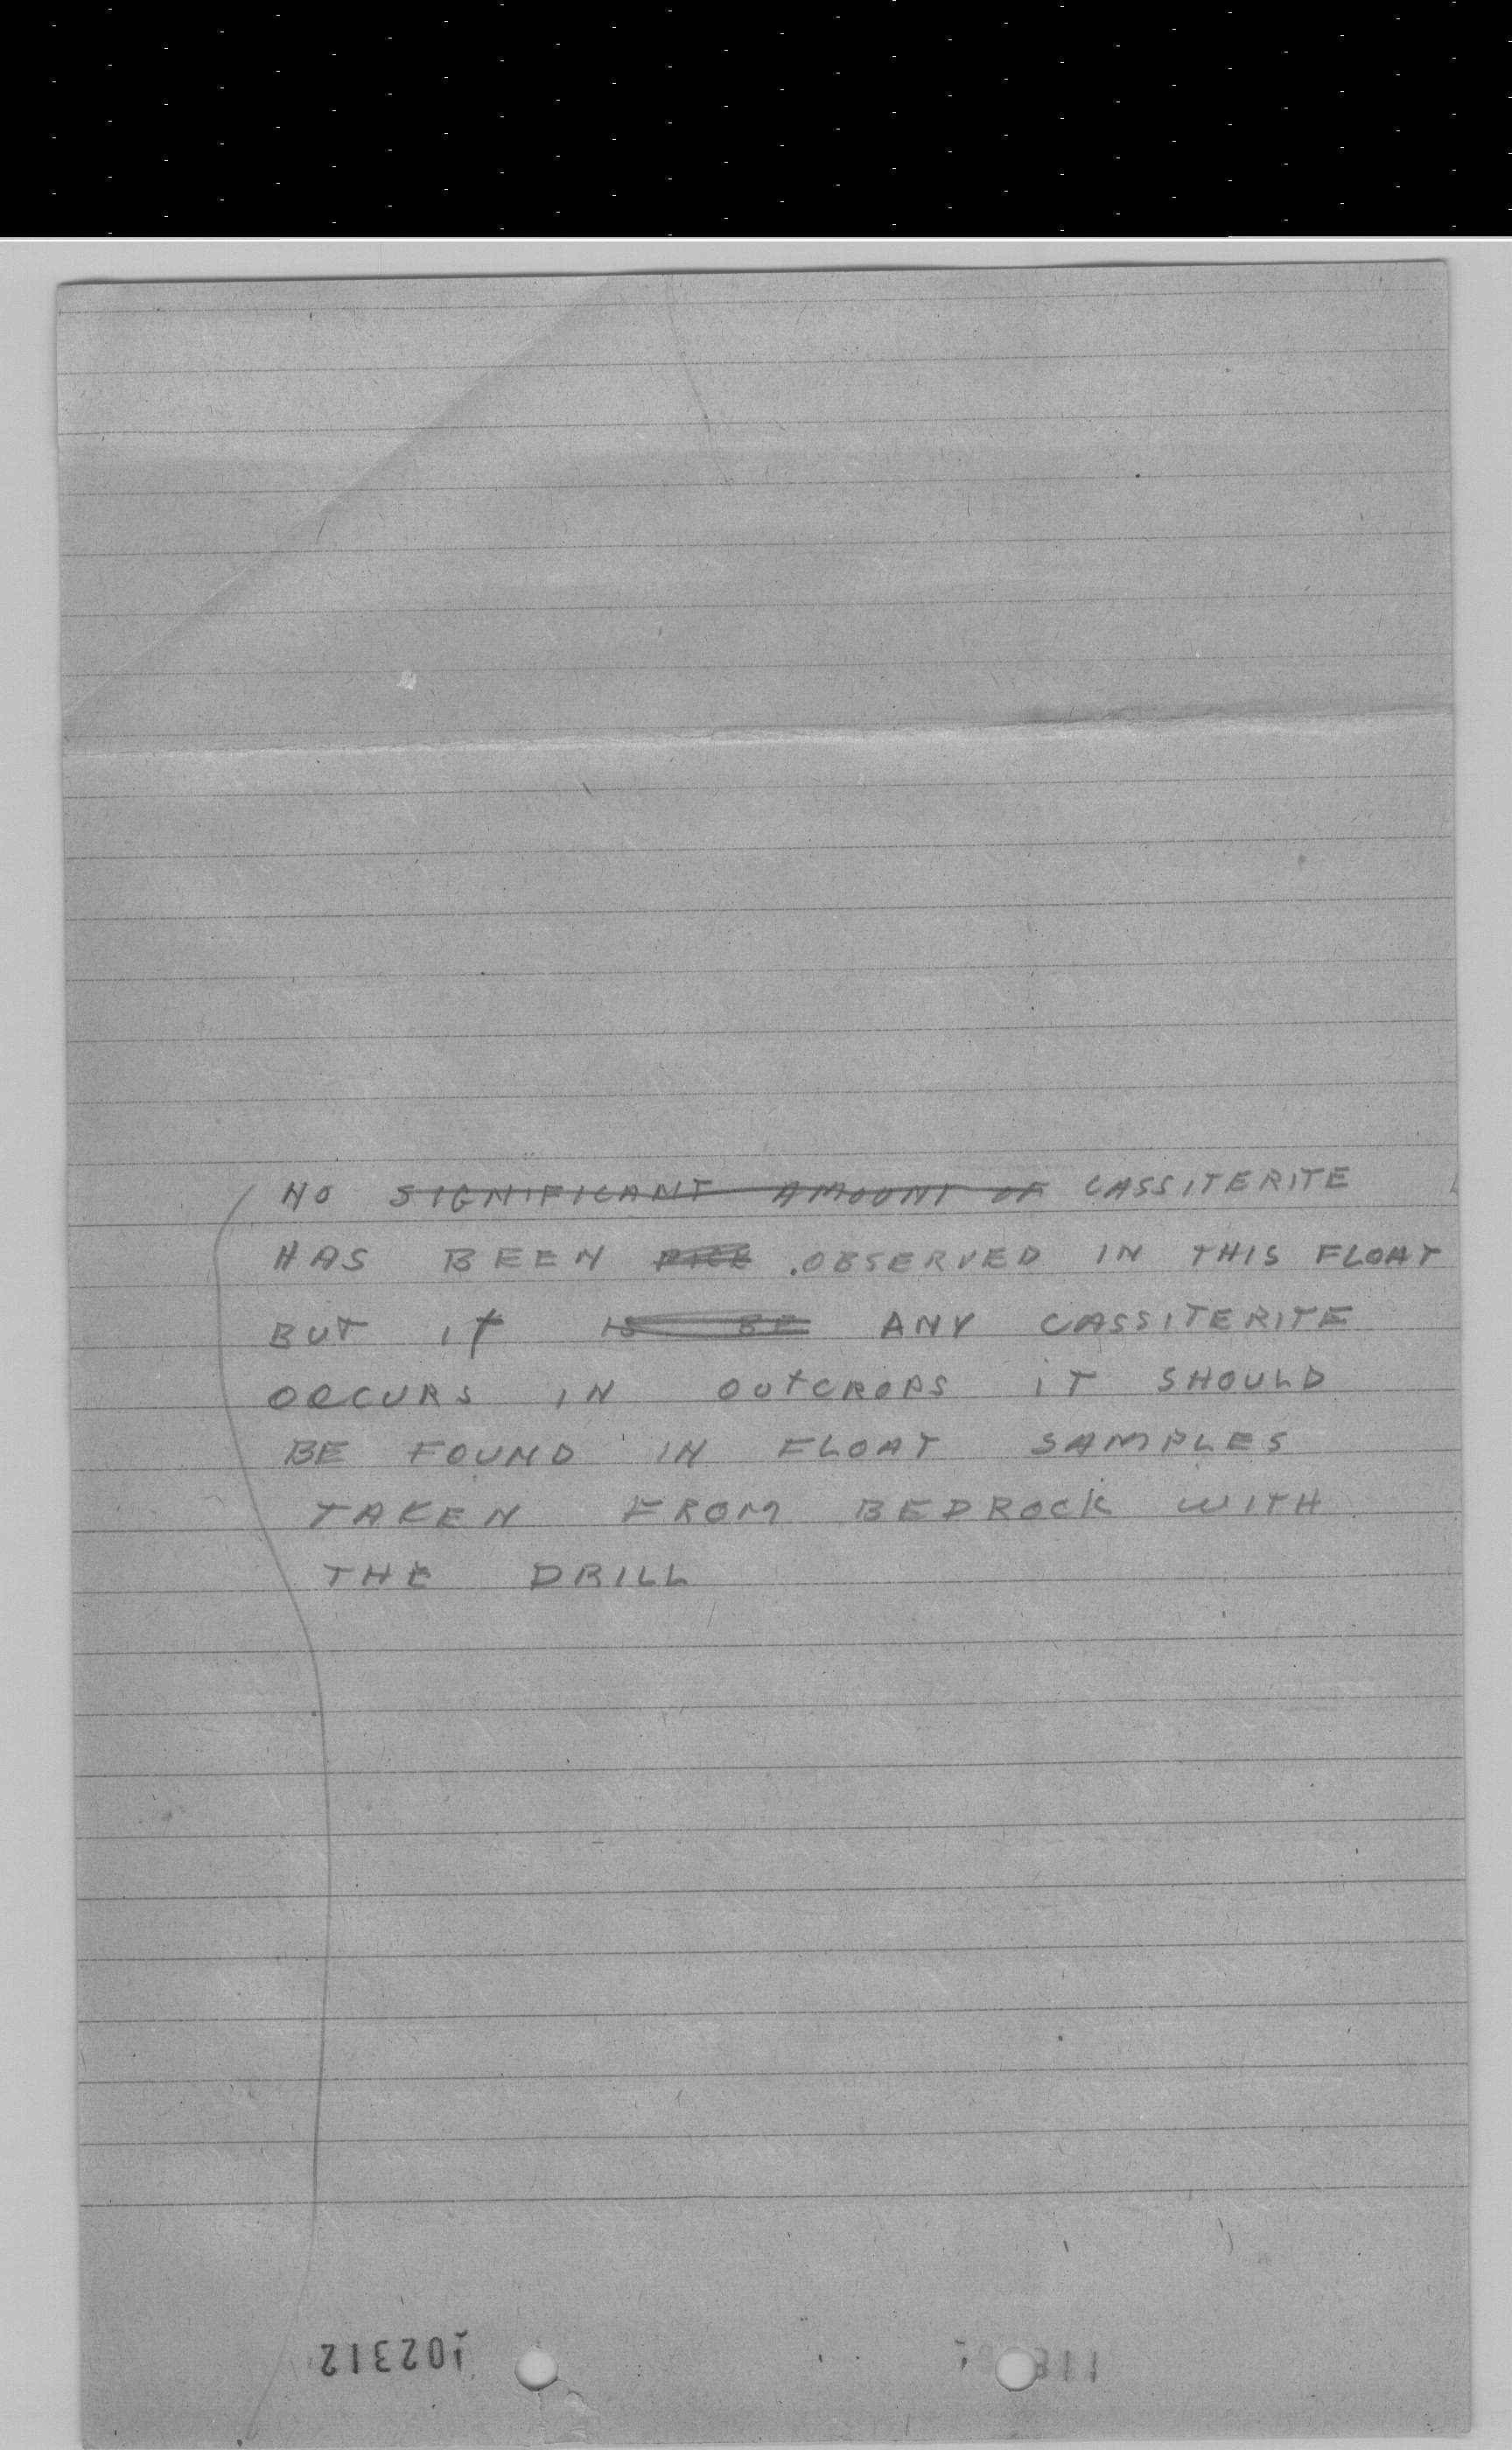 NO SIGNIFICANT AMOUNT OF CASSITERITE
HAS BEEN OBSERVED IN THIS FLOAT
BUT IF IS BE ANY CASSITERITE
OCCURS IN OUTCROPS IT SHOULD
BE FOUND IN FLOAT SAMPLES
TAKEN FROM BEDROCK WITH
THE DRILL
102312